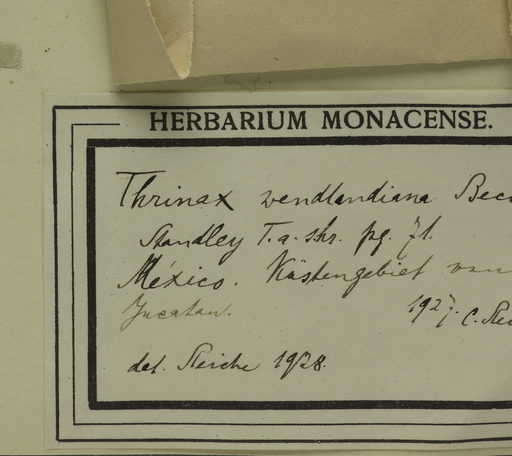 HERBARIUM MONACENSE.
Thrinax wendlandiana Becc
Standley T. a. shr. pg. 71.
México. Küstengebiet von
Yucatan. 1927. C. Rei
det. Reiche 1928.